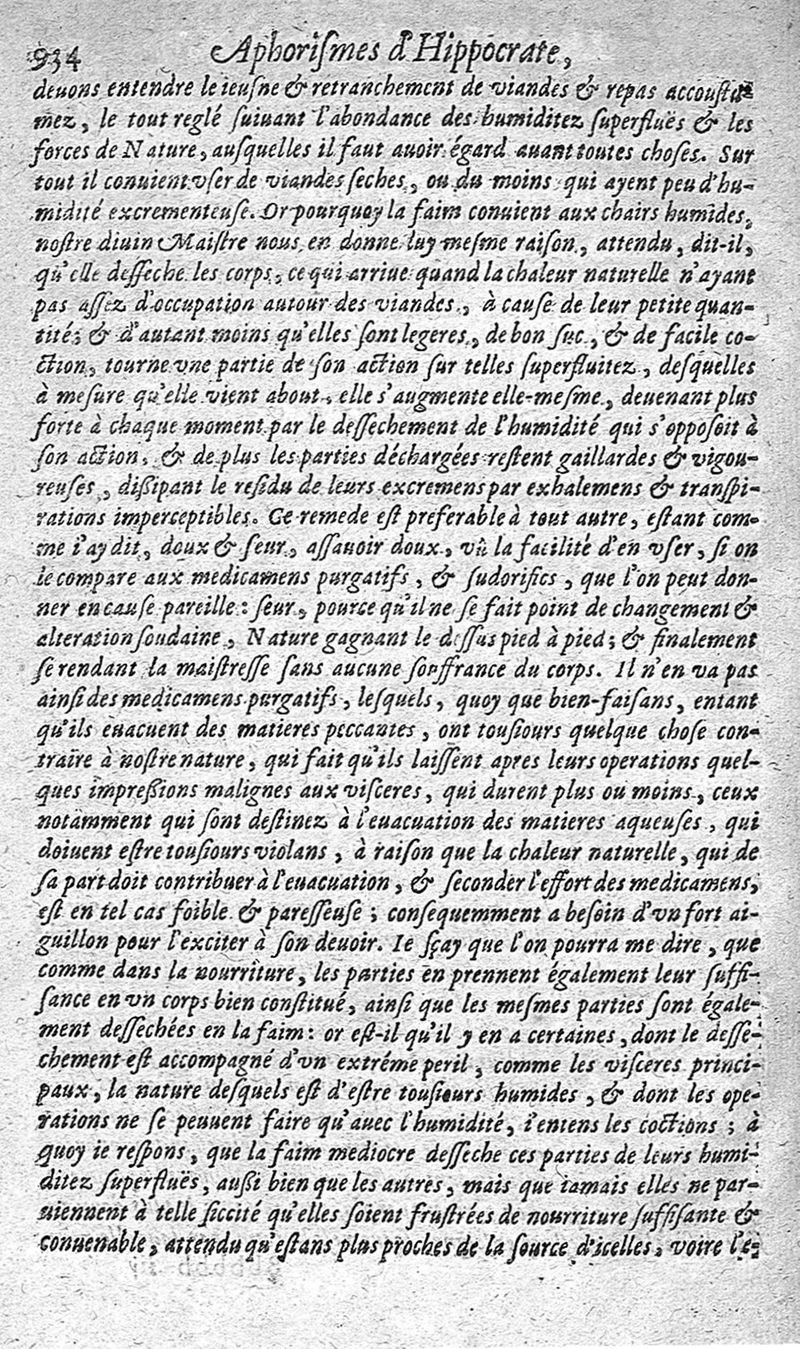 934 Aphoriſmes d'Hippocrate,
deuons entendre le ieuſne & retranchement de viandes & repas accouſtu-
mez, le tout reglé ſuiuant l'abondance des humiditez ſuperfluës & les
forces de Nature, auſquelles il faut auoir égard auant toutes choſes. Sur
tout il conuient vſer de viandes ſeches, ou du moins qui ayent peu d'hu-
midité excrementeuſe. Or pourquoy la faim conuient aux chairs humides,
noſtre diuin Maiſtre nous en donne luy meſme raiſon, attendu, dit-il,
qu'elle deſſeche les corps, ce qui arriue quand la chaleur naturelle n'ayant
pas aſſez d'occupation autour des viandes, à cauſe de leur petite quan-
tité; & d'autant moins qu'elles ſont legeres, de bon ſuc, & de facile co-
ction, tourne vne partie de ſon action ſur telles ſuperfluitez, deſquelles
à meſure qu'elle vient about, elle s'augmente elle-meſme, deuenant plus
forte à chaque moment par le deſſechement de l'humidité qui s'oppoſoit à
ſon action, & de plus les parties déchargées reſtent gaillardes & vigou-
reuſes, diſſipant le reſidu de leurs excremens par exhalemens & tranſpi-
rations imperceptibles. Ce remede eſt preferable à tout autre, eſtant com-
me i'ay dit, doux & ſeur, aſſauoir doux, vû la facilité d'en vſer, ſi on
le compare aux medicamens purgatifs, & ſudorifics, que l'on peut don-
ner en cauſe pareille: ſeur, pource qu'il ne ſe fait point de changement &
alteration ſoudaine, Nature gagnant le deſſus pied à pied; & finalement
ſe rendant la maiſtreſſe ſans aucune ſouffrance du corps. Il n'en va pas
ainſi des medicamens purgatifs, leſquels, quoy que bien-faiſans, entant
qu'ils euacuent des matieres peccantes, ont touſiours quelque choſe con-
traire à noſtre nature, qui fait qu'ils laiſſent apres leurs operations quel-
ques impreſſions malignes aux viſceres, qui durent plus ou moins, ceux
notamment qui ſont deſtinez à l'euacuation des matieres aqueuſes, qui
doiuent eſtre touſiours violans, à raiſon que la chaleur naturelle, qui de
ſa part doit contribuer à l'euacuation, & ſeconder l'effort des medicamens,
eſt en tel cas foible & pareſſeuſe; conſequemment a beſoin d'vn fort ai-
guillon pour l'exciter à ſon deuoir. Ie ſçay que l'on pourra me dire, que
comme dans la nourriture, les parties en prennent également leur ſuffi-
ſance en vn corps bien conſtitué, ainſi que les meſmes parties ſont égale-
ment deſſechées en la faim: or eſt-il qu'il y en a certaines, dont le deſſe-
chement eſt accompagné d'vn extréme peril, comme les viſceres princi-
paux, la nature deſquels eſt d'eſtre touſiours humides, & dont les ope-
rations ne ſe peuuent faire qu'auec l'humidité, i'entens les coctions; à
quoy ie reſpons, que la faim mediocre deſſeche ces parties de leurs humi-
ditez ſuperfluës, auſſi bien que les autres, mais que iamais elles ne par-
uiennent à telle ſiccité qu'elles ſoient fruſtrées de nourriture ſuffiſante &
conuenable, attendu qu'eſtans plus proches de la ſource d'icelles, voire l'e-